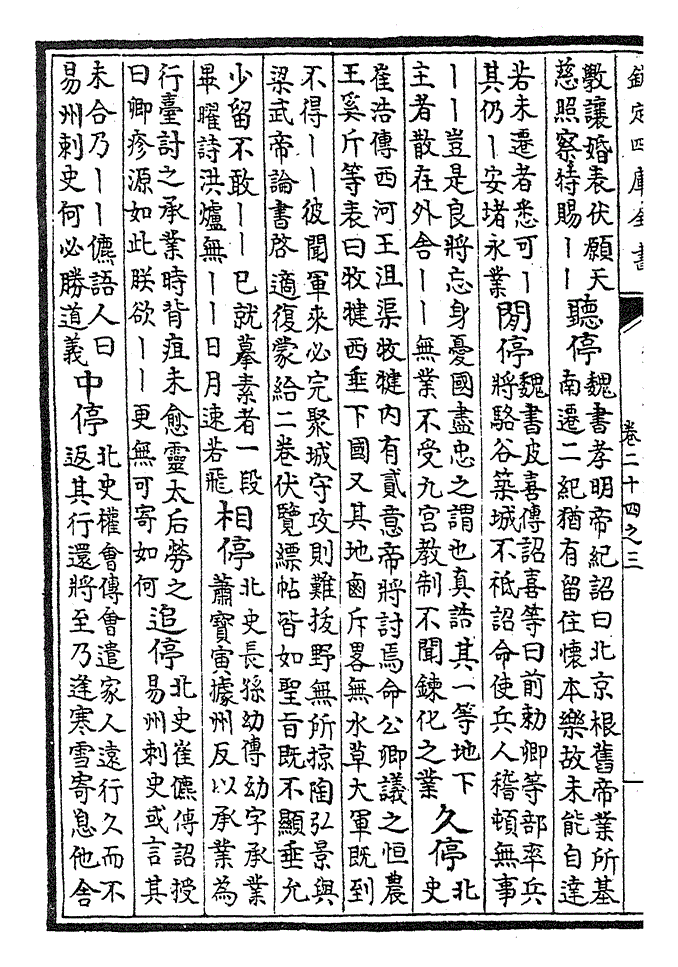 欽定四庫全書
卷二十四之三
敷讓婚表伏願天
慈照察特賜丨丨
聽停
魏書孝明帝紀詔曰北京根舊帝業所基
南遷二紀猶有留住懷本樂故未能自達
若未遷者悉可丨
其仍丨安堵永業
閒停
魏書皮喜傳詔喜等曰前勅卿等部率兵
將駱谷築城不祗詔命使兵人稽頓無事
丨丨豈是良將忘身憂國盡忠之謂也真誥其一等地下
主者散在外舍丨丨無業不受九宮教制不聞鍊化之業
久停
北
史
崔浩傳西河王沮渠牧犍內有貳意帝將討焉命公卿議之恒農
王奚斤等表曰牧犍西垂下國又其地鹵斥畧無水草大軍既到
不得丨丨彼聞軍來必完聚城守攻則難拔野無所掠陶弘景與
梁武帝論書啓適復蒙給二卷伏覽縹帖皆如聖旨既不顯垂允
少留不敢丨丨已就摹素者一段
畢曜詩洪爐無丨丨日月速若飛
相停
北史長孫幼傳幼字承業
蕭寶寅據州反以承業為
行臺討之承業時背疽未愈靈太后勞之
曰卿疹源如此朕欲丨丨更無可寄如何
追停
北史崔㒞傳詔授
易州刺史或言其
未合乃丨丨㒞語人曰
易州刺史何必勝道義
中停
北史權會傳會遣家人遠行久而不
返其行還將至乃逢寒雪寄息他舍